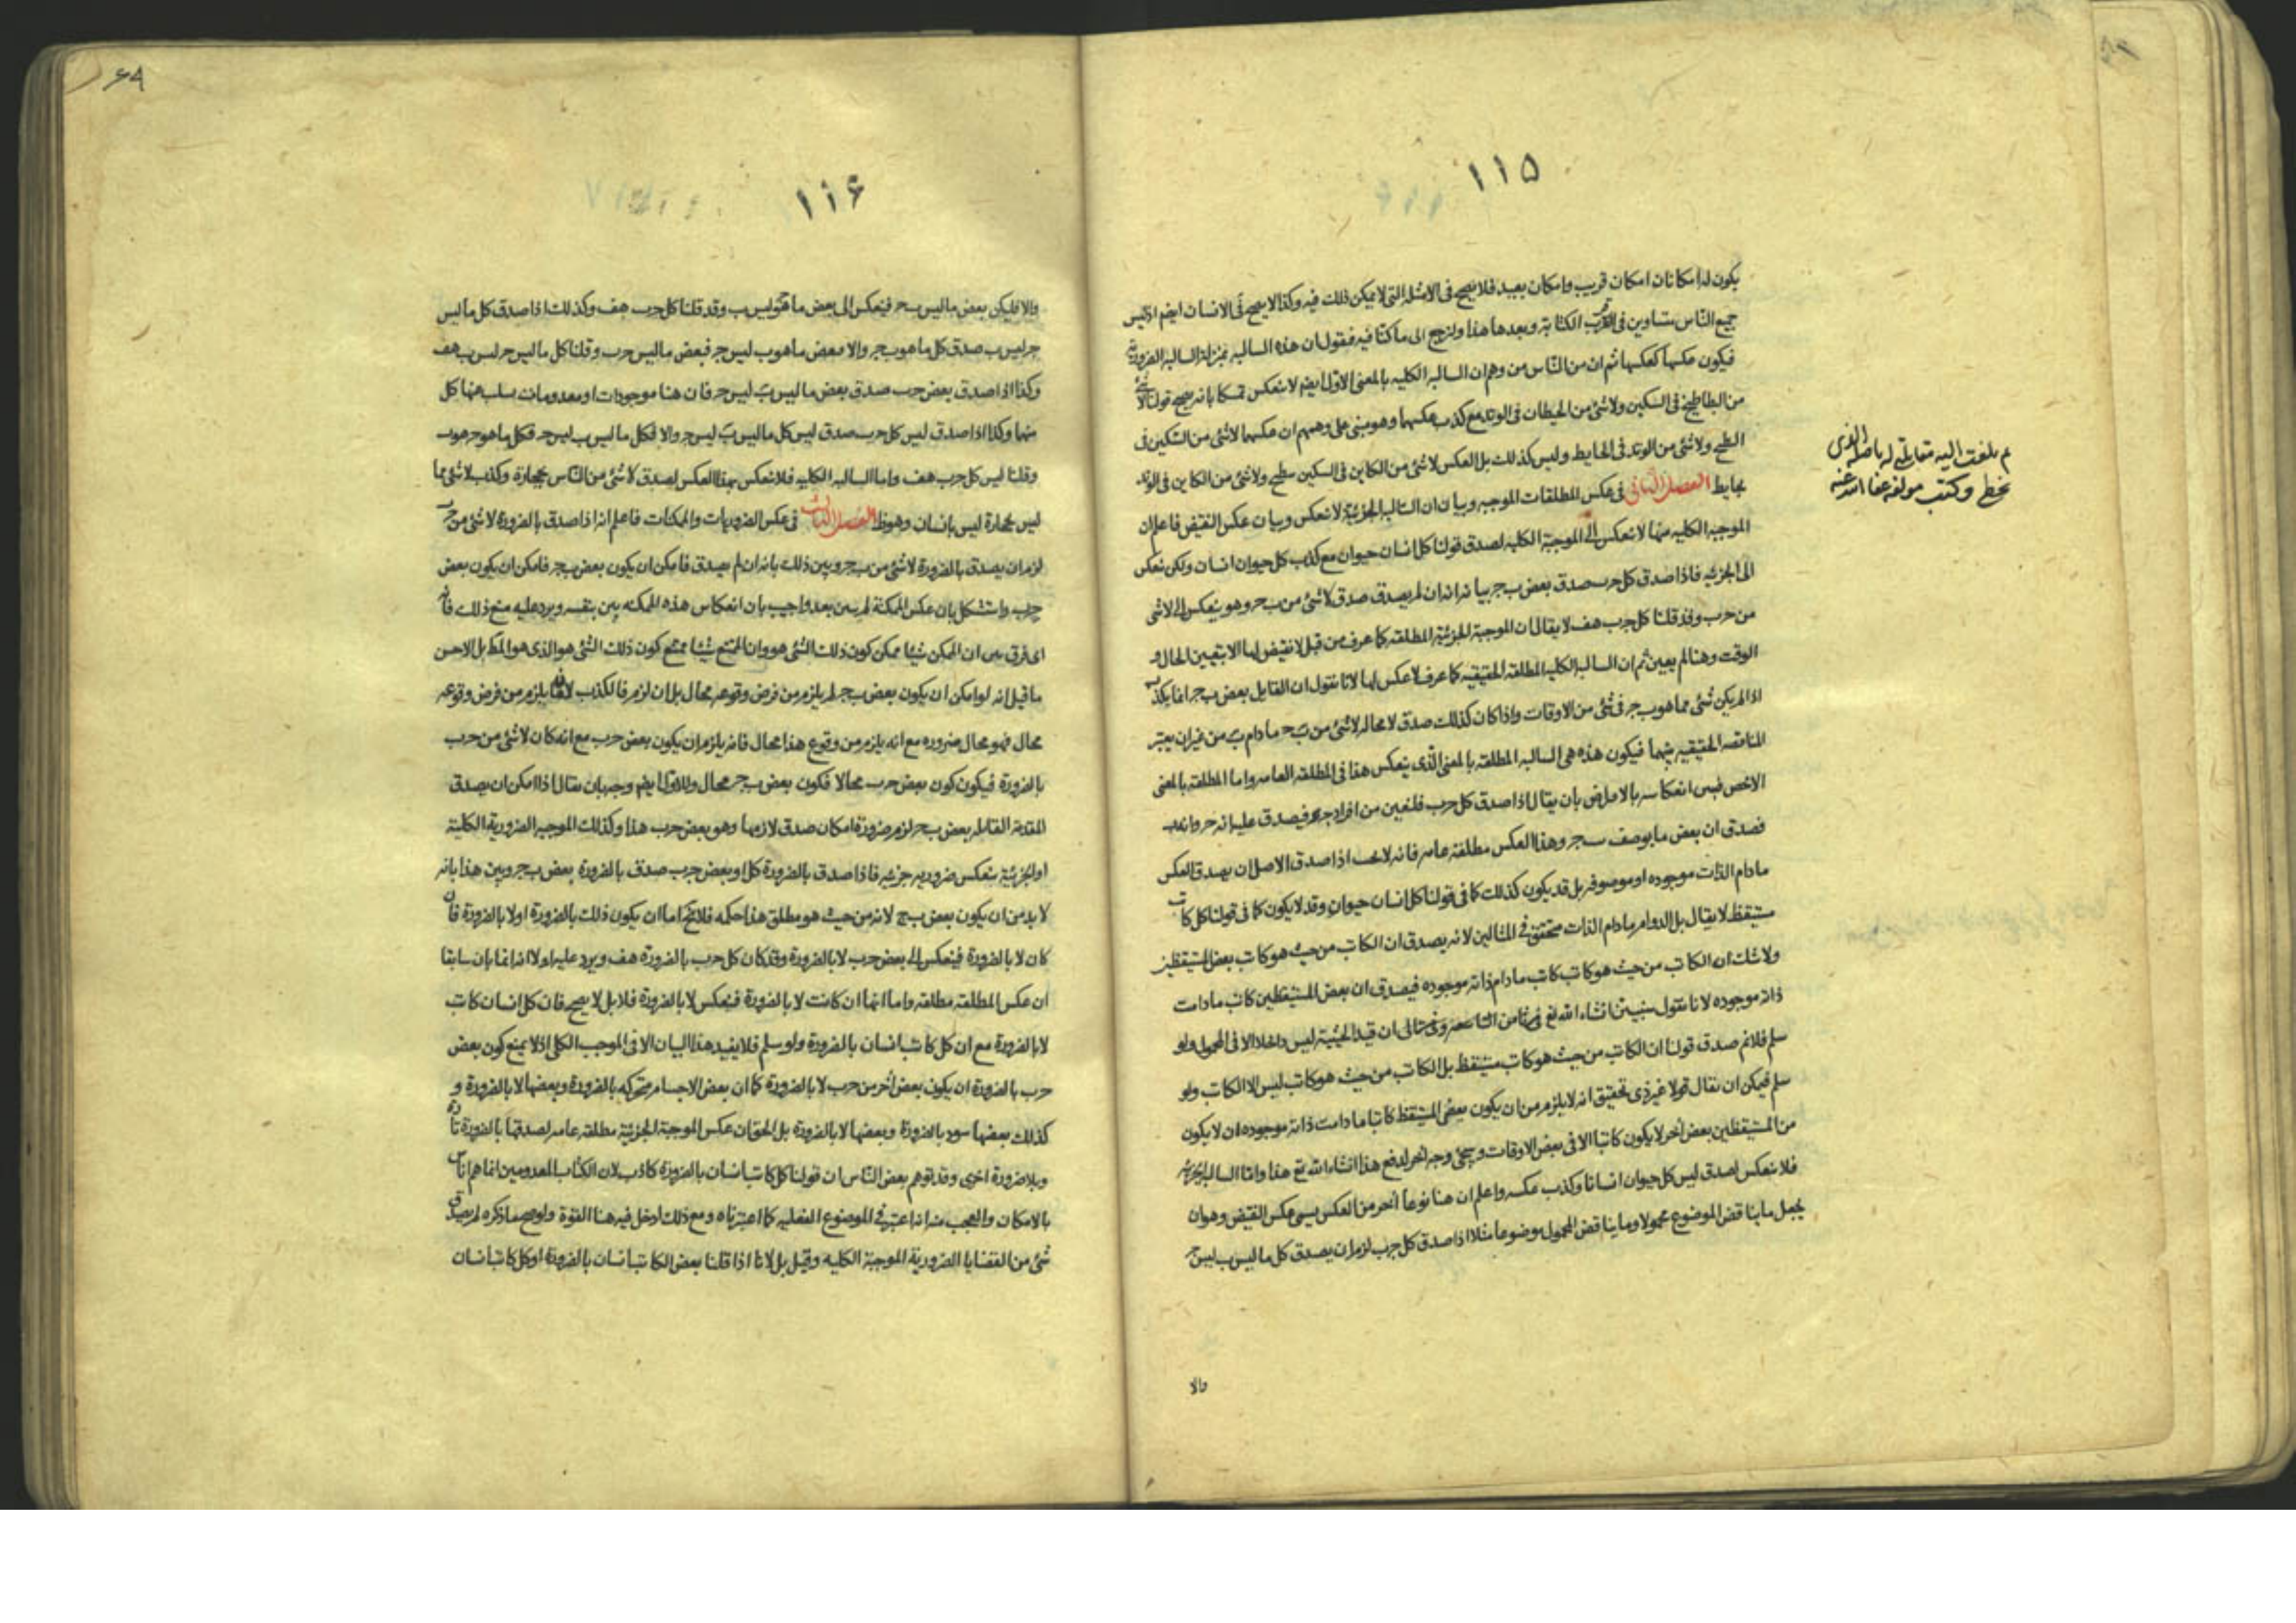 ١١٥
يكون له امكانان امكان قريب وامكان بعيد فلا يصح فى الامثله التى لا يمكن ذلك فيه وكذا لا يصح فى الانسان ايضم اذ ليس
جميع الناس متساوين فى القرب الكتابة وبعدها هذا ولنرجع الى ما كنا فيه فنقول ان هذه السالبه بمنزلة السالبه الضروريه
فيكون عكسها كعكسها ثم ان من الناس من وهم ان السالبه الكليه بالمعنى الاول ايضم لا ينعكس تمسكا بانه يصح قولنا لا شئ
من البطاطيخ فى السكين ولا شئ من الحيطان فى الوتد مع كذب عكسهما وهو مبنى على وهمهم ان عكسهما لا شئ من السكين فى
البطيخ ولا شئ من الوتد فى الحايط وليس كذلك بل العكس لا شئ من الكاين فى السكين بطيخ ولا شئ من الكاين فى الوتد
بحايط الفصل الثانى فى عكس المطلقات الموجبه وبيان ان السالبه الجزئية لا تنعكس وبيان عكس النقيض فاعلم ان
الموجبه الكليه منها لا تنعكس الى الموجبة الكليه لصدق قولنا كل انسان حيوان مع كذب كل حيوان انسان ولكن تنعكس
الى الجزئيه فاذا صدق كل حرب صدق بعض ب ج بيانه انه ان لم يصدق صدق لا شئ من ب حر وهو ينعكس الى لا شئ
من حرب وقد قلنا كل حرب هف لا يقال ان الموجبة الجزئية المطلقه كما عرف من قبل لا نقيض لها الا بتعيين الحال و
الوقت وهنا لم يعين ثم ان السالبه الكليه المطلقه الحقيقيه كما عرف لا عكس لها لانا نقول ان القايل بعض ب ج انما يكذب
اذا لم يكن شئ مما هو ب جر فى شئ من الاوقات واذا كان كذلك صدق لا محاله لا شئ من ب ح مادام ب من غير ان يعتبر
المناقضه الحقيقيه بينهما فيكون هذه هى السالبه المطلقه بالمعنى الذى ينعكس هذا فى المطلقه العامه واما المطلقه بالمعنى
الاخص فبين انعكاسه بالافتراض بان يقال اذا صدق كل حرب فلنعين من افراد ج فيصدق عليه انه حر وانه ب
فصدق ان بعض ما يوصف ب جر وهذا العكس مطلقه عامه فانه لا يجب اذا صدق الاصل ان يصدق العكس
مادام الذات موجوده او موصوفه بل قد يكون كذلك كما فى قولنا كل انسان حيوان وقد لا يكون كما فى قولنا كل كاتب
مستيقظ لا يقال بل الدوام مادام الذات متحقق فى المثالين لانه يصدق ان الكاتب من حيث هو كاتب بعض المستيقظين
ولا شك ان الكاتب من حيث هو كاتب كاتب مادام ذاته موجوده فيصدق ان بعض المستيقظين كاتب مادامت
ذاته موجوده لانا نقول سنبين انشاء الله تع ان قيد الحيثية ليس داخلا الا فى المحمول ولو
سلم فلا نم صدق قولنا ان الكاتب من حيث هو كاتب مستيقظ بل الكاتب من حيث هو كاتب ليس الا الكاتب ولو
سلم فيمكن ان نقال قولا غير ذى تحقيق انه لا يلزم من ان يكون بعض المستيقظ كاتبا مادامت ذاته موجوده ان لا يكون
من المستيقظين بعض اخر لا يكون كاتبا الا فى بعض الاوقات وسيجئ وجه اخر لدفع هذا انشاء الله تع هذا واما السالبه الجزئيه
فلا تنعكس لصدق ليس كل حيوان انسانا وكذب عكسه واعلم ان هنا نوعا اخر من العكس يسمى عكس النقيض وهو ان
يجعل ما يناقض الموضوع محمولا وما يناقض المحمول موضوعا مثلا اذا صدق كل جرب لزم ان يصدق كل ما ليس ب ليس ج
والا
ثم بلغت اليه مقابلتى له باصله الذى
بخط وكتب مولفه عفا الله عنه
٦٩
١١٦
والا فليكن بعض ما ليس ب جر فينعكس الى بعض ما هو ليس ب وقد قلنا كل حرب هف وكذلك اذا صدق كل ما ليس
جر ليس ب صدق كل ما هو ب جر والا فبعض ما هو ب ليس جر فبعض ما ليس حرب وقلنا كل ما ليس حر ليس ب هف
وكذا اذا صدق بعض حرب صدق بعض ما ليس ب ليس حر فان هنا موجودات او معدومات يسلب عنها كل
منهما وكذا اذا صدق ليس كل حرب صدق ليس كل ما ليس ب ليس جر والا فكل ما ليس ب ليس حر فكل ما هو حر هو ب
وقلنا ليس كل حرب هف واما السالبه الكليه فلا تنعكس بهذا العكس لصدق لا شئ من الناس بحجارة وكذب لا شئ مما
ليس بحجارة ليس بانسان وهو ظ الفصل الثالث فى عكس الضروريات والممكنات فاعلم انه اذا صدق بالضرورة لا شئ من حرب
لزم ان يصدق بالضرورة لا شئ من ب جر وبين ذلك بانه ان لم يصدق فامكن ان يكون بعض ب جر فامكن ان يكون بعض
جرب واستشكل بان عكس الممكنة لم يبين بعد واجيب بان انعكاس هذه الممكنه بين بنفسه ويرد عليه منع ذلك فانه
اى فرق بين ان الممكن شيئا ممكن كون ذلك الشئ هو وان الممتنع شيئا ممتنع كون ذلك الشئ هو الذى هو المط بل الاحسن
ما قيل انه لو امكن ان يكون بعض ب جر لم يلزم من فرض وقوعه محال بل ان لزم فالكذب يلزم من فرض وقوعه
محال فهو محال ضروره مع انه يلزم من وقوع هذا محال فانه يلزم ان يكون بعض حرب مع انه كان لا شئ من حرب
بالضرورة فيكون كون بعض حرب محالا فكون بعض ب جر محال وللاول ايضم وجه بان نقال اذا امكن ان يصدق
المقدمة القايله بعض ب حر لزم ضرورة امكان صدق لازمها وهو بعض حرب هذا وكذلك الموجبه الضرورية الكلية
او الجزئية تنعكس ضروريه جزئيه فاذا صدق بالضرورة كل او بعض جرب صدق بالضرورة بعض ب جر وبين هذا بانه
لا بد من ان يكون بعض ب ج لانه من حيث هو مطلق هذا حكمه فلا يخ اما ان يكون ذلك بالضرورة او لا بالضرورة فان
كان لا بالضرورة فينعكس الى بعض حرب لا بالضرورة وقد كان كل حرب بالضرورة هف ويرد عليه اولا انه انما بان سابقا
ان عكس المطلقه مطلقه واما انها ان كانت لا بالضرورة فتنعكس لا بالضرورة فلا بل لا يصح فان كل انسان كاتب
لا بالضرورة مع ان كل كاتب انسان بالضرورة ولو سلم فلا يفيد هذا البيان الا فى الموجب الكلى اذ لا يمنع كون بعض
حرب بالضرورة ان يكون بعض اخر من حرب لا بالضرورة كما ان بعض الاجسام متحركه بالضرورة وبعضها لا بالضرورة و
كذلك بعضها سود بالضرورة وبعضها لا بالضرورة بل الحق ان عكس الموجبة الجزئية مطلقه عامه لصدقها بالضرورة تارة
وبلا ضرورة اخرى وقد توهم بعض الناس ان قولنا كل كاتب انسان بالضرورة كاذب لان الكتاب المعدومين انما هم اناس
بالامكان والعجب منه انه اعتبر فى الموضوع الفعليه كما اعتبرناه ومع ذلك ادخل فيه هنا القوة ولو صح ما ذكره لم يصدق
شئ من القضايا الضرورية الموجبة الكليه وقيل بل لانا اذا قلنا بعض الكاتب انسان بالضرورة او كل كاتب انسان